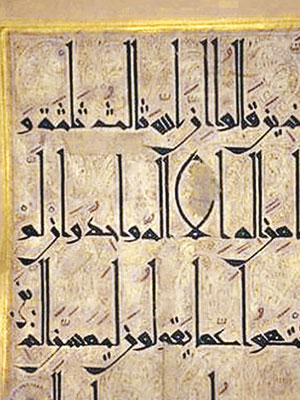 الذين قالوا ان الله ثالث ثلثة و
ما من اله الا اله واحد وان لم
ينتهوا عما يقولون ليمسن الذين